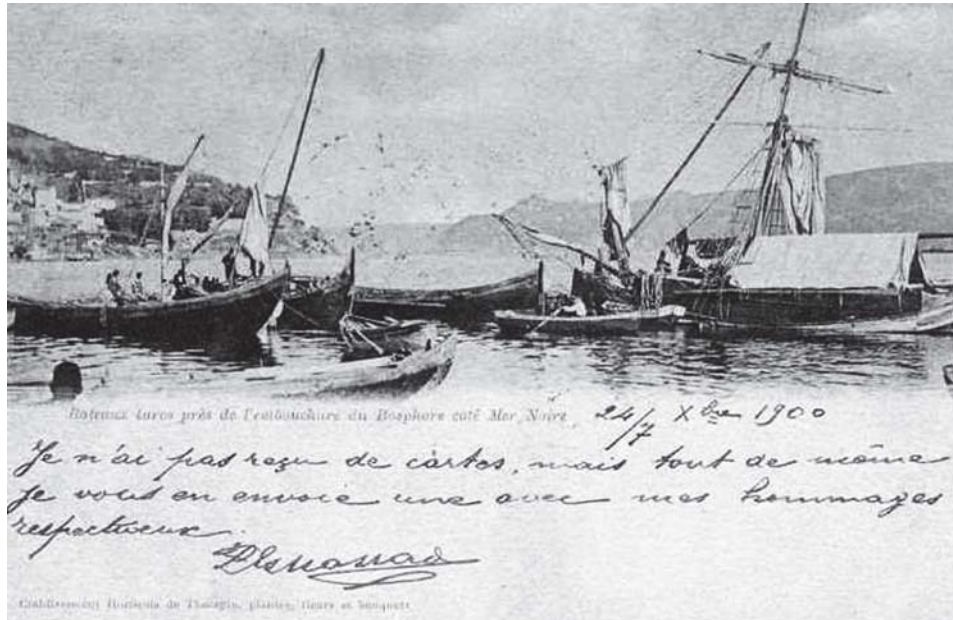 Bateaux turcs près de l'embouchure du Bosphore coté Mer Noire, 24/7 Xbre 1900
Je n'ai pas reçu de cartes, mais tout de même
je vous en envoie une avec mes hommages
respectueux.
Etablissement Horticole de Thérapia, plantes, fleurs et bouquets